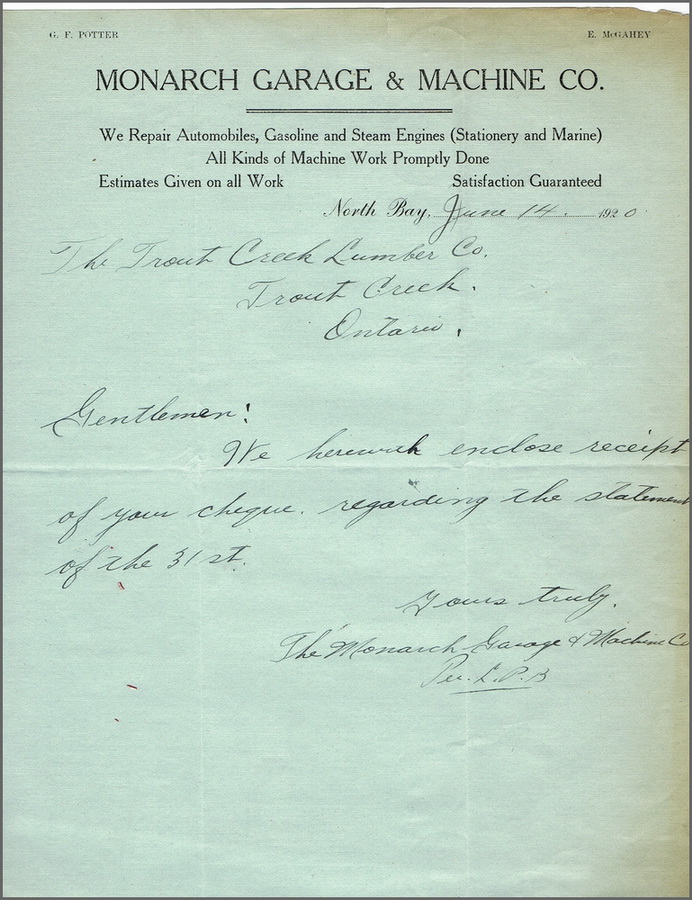 G. F. POTTER E. McGAHEY
MONARCH GARAGE & MACHINE CO.
We Repair Automobiles, Gasoline and Steam Engines (Stationery and Marine)
All Kinds of Machine Work Promptly Done
Estimates Given on all Work Satisfaction Guaranteed
North Bay, June 14. 1920
The Trout Creek Lumber Co.
Trout Creek.
Ontario.
Gentlemen!
We herewith enclose receipt
of your cheque. regarding the statement
of the 31 st.
Yours truly.
The Monarch Garage & Machine Co
Per. L. P. B